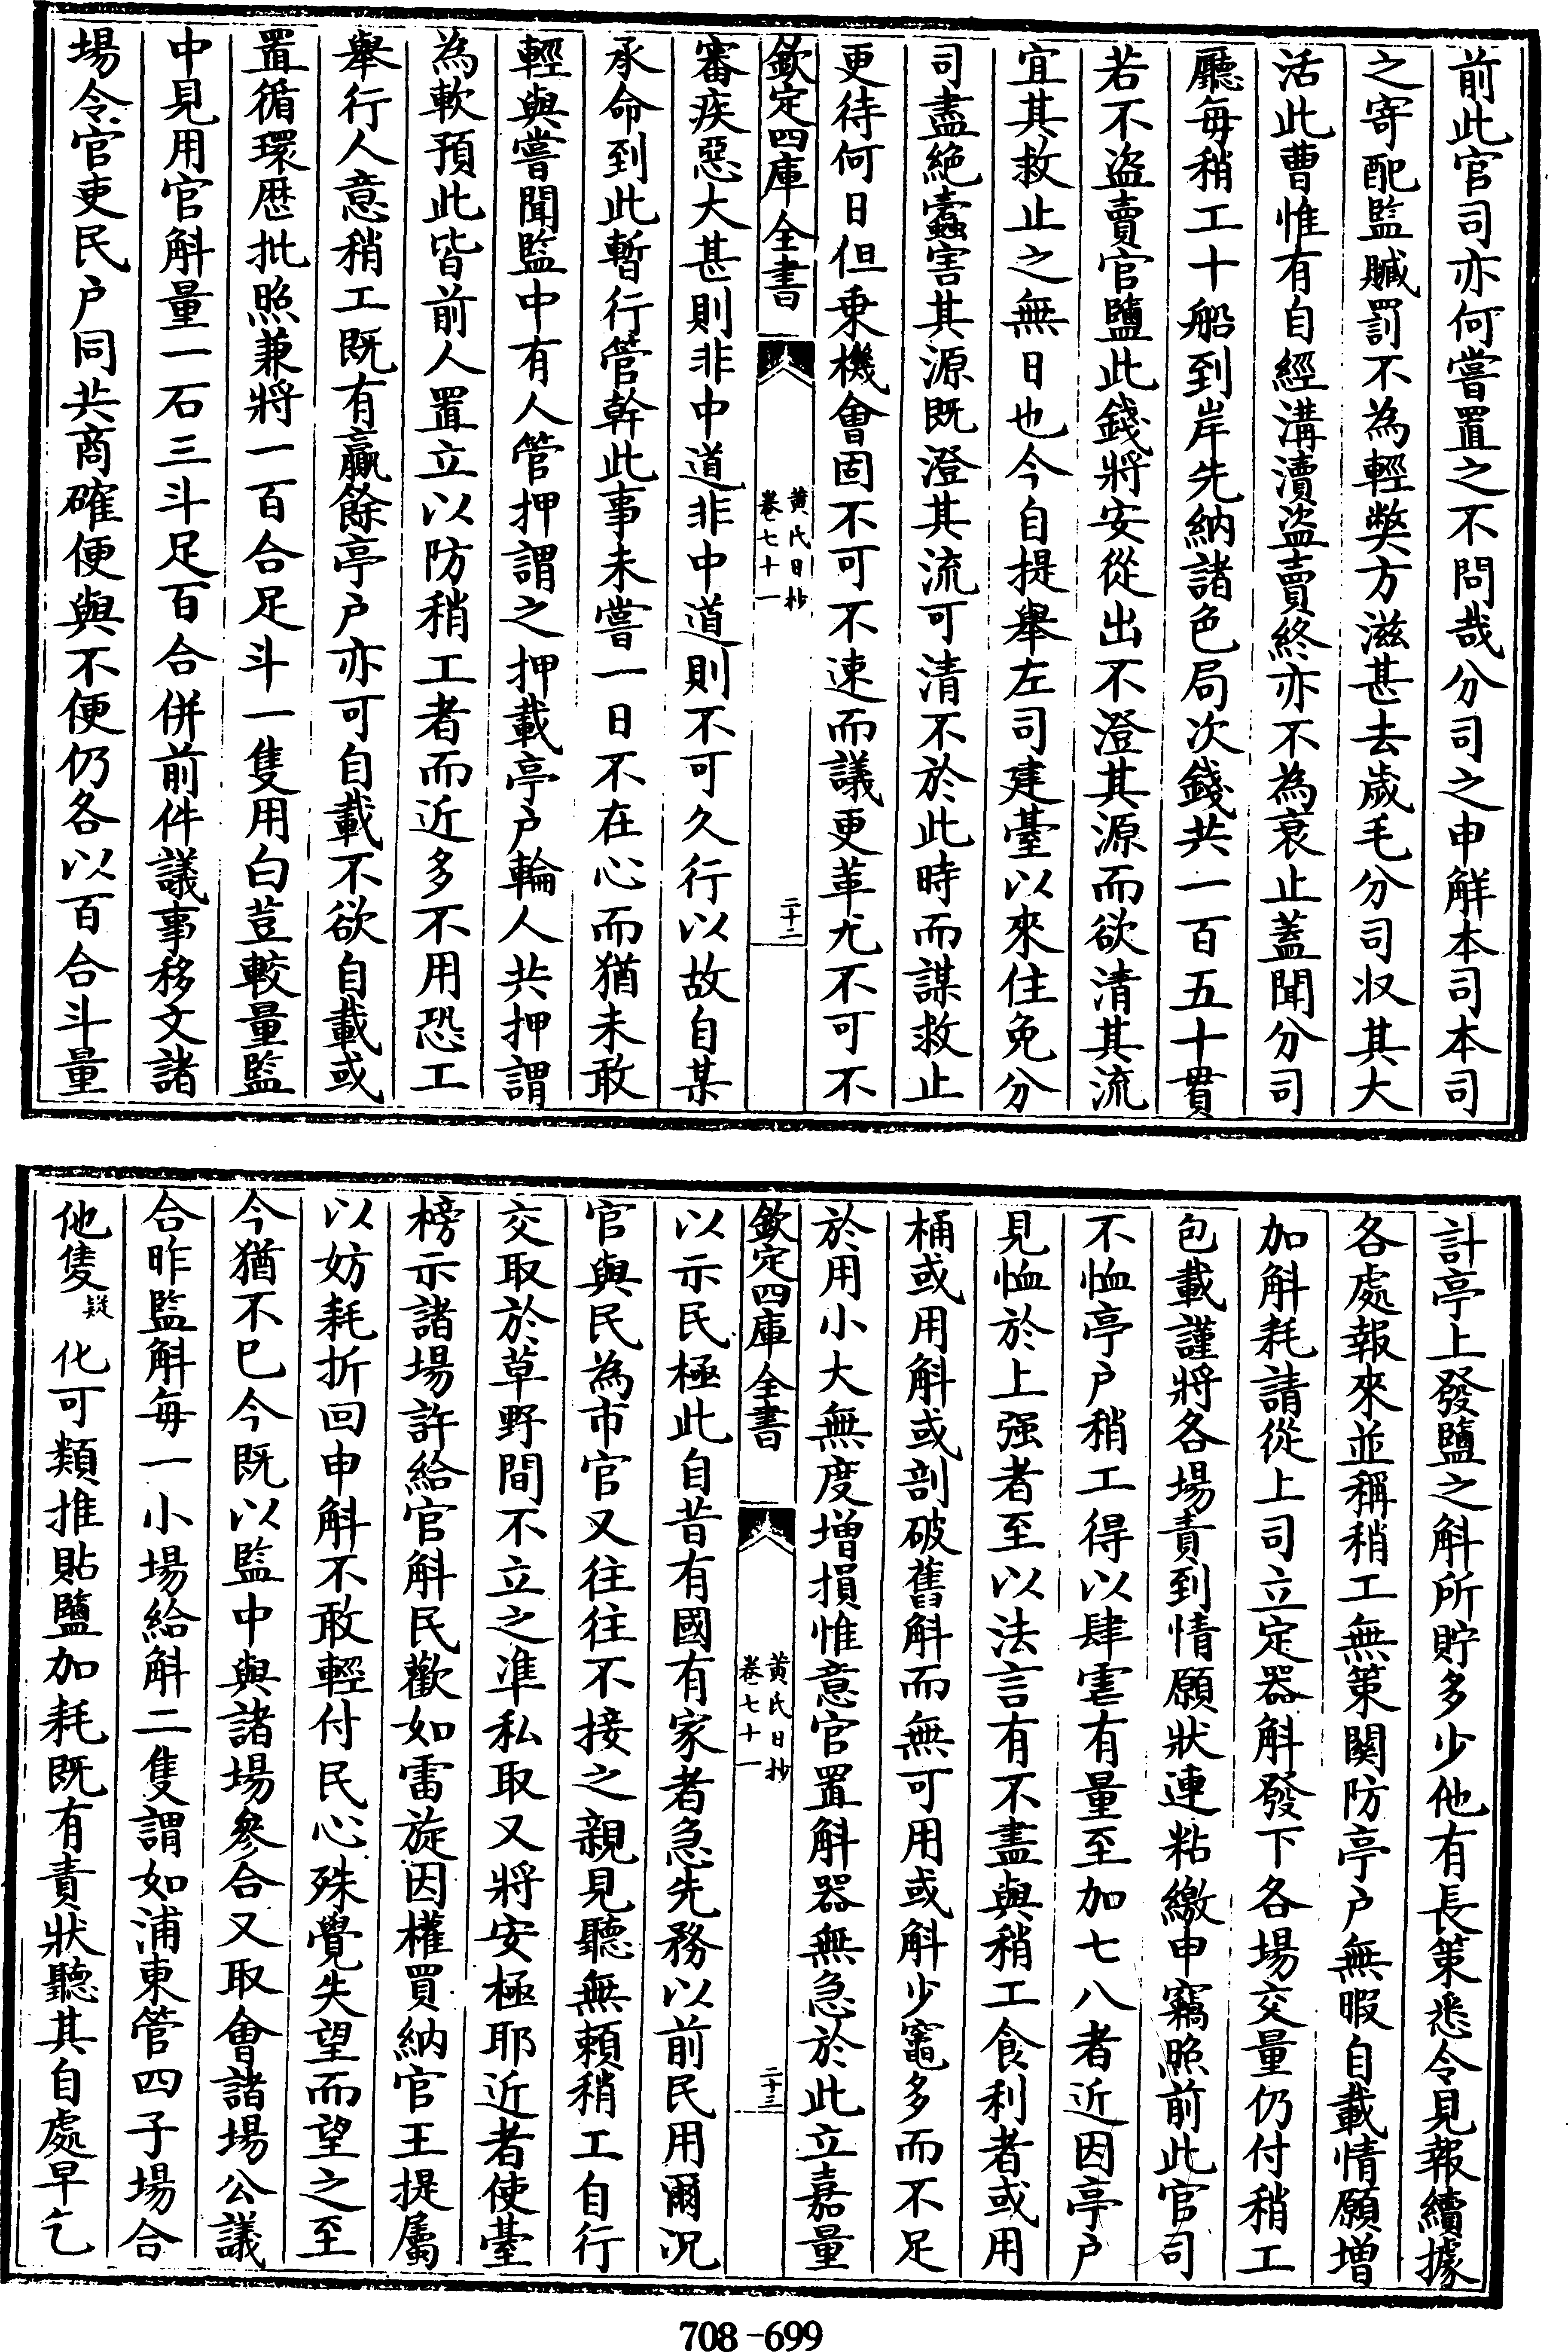 前此官司亦何嘗置之不問哉分司之申解本司本司
之寄配監贓罰不為輕弊方滋甚去歲毛分司収其大
活此曹惟有自經溝瀆盗賣終亦不為衰止蓋聞分司
廳每稍工十船到岸先納諸色局次錢共一百五十貫
若不盗賣官鹽此錢將安從出不澄其源而欲清其流
宜其救止之無日也今自提舉左司建臺以來住免分
司盡絶蠧害其源既澄其流可清不於此時而謀救止
更待何日但乗機會固不可不速而議更革尤不可不
欽定四庫全書
黄氏日抄
卷七十一
二十二
審疾惡大甚則非中道非中道則不可久行以故自某
承命到此暫行管幹此事未嘗一日不在心而猶未敢
輕與嘗聞監中有人管押謂之押載亭户輪人共押謂
為軟預此皆前人置立以防稍工者而近多不用恐工
舉行人意稍工既有贏餘亭户亦可自載不欲自載或
置循環歴批照兼將一百合足斗一隻用白荳較量監
中見用官斛量一石三斗足百合併前件議事移文諸
場令官吏民户同共商確便與不便仍各以百合斗量
計亭上發鹽之斛所貯多少他有長策悉令見報續據
各處報來並稱稍工無策關防亭户無暇自載情願増
加斛耗請從上司立定器斛發下各場交量仍付稍工
包載謹將各場責到情願狀連粘繳申竊照前此官司
不恤亭户稍工得以肆虐有量至加七八者近因亭户
見恤於上强者至以法言有不盡與稍工食利者或用
桶或用斛或剖破舊斛而無可用或斛少竈多而不足
於用小大無度増損惟意官置斛器無急於此立嘉量
欽定四庫全書
黄氏日抄
卷七十一
二十三
以示民極此自昔有國有家者急先務以前民用爾況
官與民為市官又往往不接之親見聽無頼稍工自行
交取於草野間不立之凖私取又將安極耶近者使臺
榜示諸場許給官斛民歡如雷旋因權買納官王提屬
以妨耗折回申斛不敢輕付民心殊覺失望而望之至
今猶不巳今既以監中與諸場參合又取會諸場公議
合昨監斛每一小場給斛二隻謂如浦東管四子場合
他隻疑 化可類推貼鹽加耗既有責狀聽其自處早乞
708-699